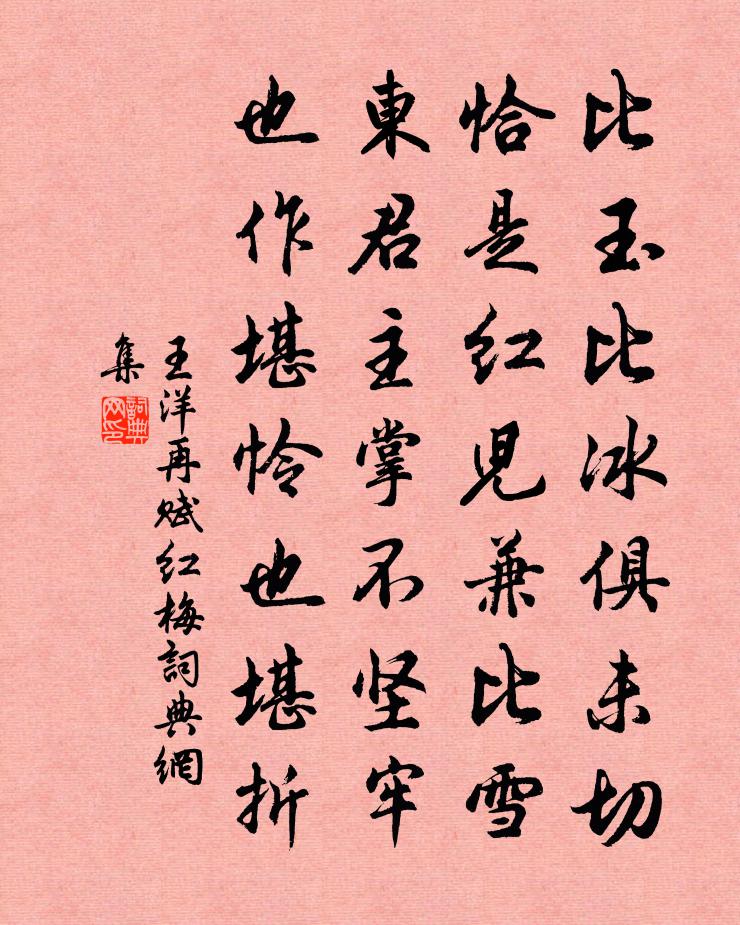 比玉比冰俱未切
恰是红児兼比雪
東君主掌不坚牢
也作堪怜也堪折
王洋再赋红梅詞典網
集
詞典
网印